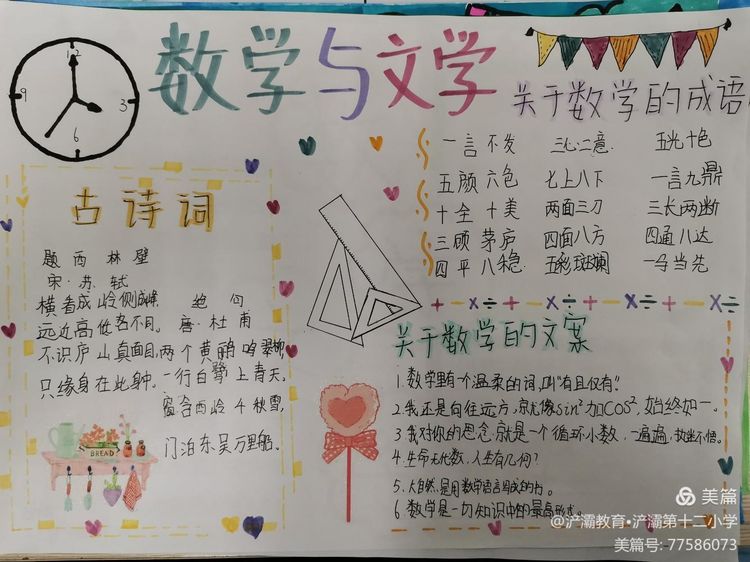 数学与文学
12
9
3
6
关于数学的成语
一言不发 三心二意 五光十色
五颜六色 七上八下 一言九鼎
十全十美 两面三刀 三长两断
三顾茅庐 四面八方 四通八达
四平八稳 五彩斑斓 一马当先
古诗词
题西林壁
宋·苏轼
横看成岭侧成峰
远近高低各不同。
不识庐山真面目,
只缘身在此钟。
绝句
唐·杜甫
两个黄鹂鸣翠柳
一行白鹭上青天,
窗含西岭千秋雪,
门泊东吴万里船。
BREAD
+-×÷+-×÷+-×÷+-×÷
关于数学的文案
1.数学里有个温柔的词,叫"有且仅有".
2.我还是向往远方,就像sin²加cos²,始终如一。
3.我对你的思念,就是一个循环小数,一遍遍,执迷不悟。
4.生命无代数,人生有几何?
5.大自然是用数学语言
6.数学是一切知识中的最高形式。
美篇
@浐灞教育•浐灞第十二小学
美篇号: 77586073